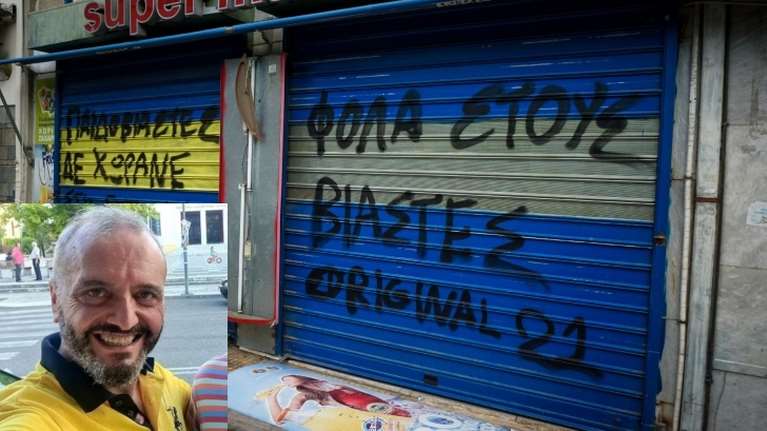 super m
ΠΑΙΔΟΒΙΑΣΤΕΣ
ΔΕ ΧΩΡΑΝΕ
ΦΟΛΑ ΣΤΟΥΣ
ΒΙΑΣΤΕΣ
ORIGINAL 21